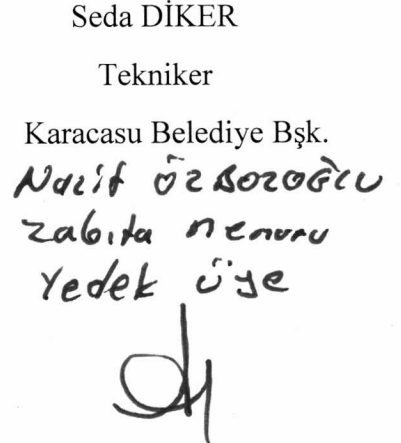 Seda DİKER
Tekniker
Karacasu Belediye Bşk.
Nazif ÖZBOZOĞLU
Zabıta Memuru
Yedek üye